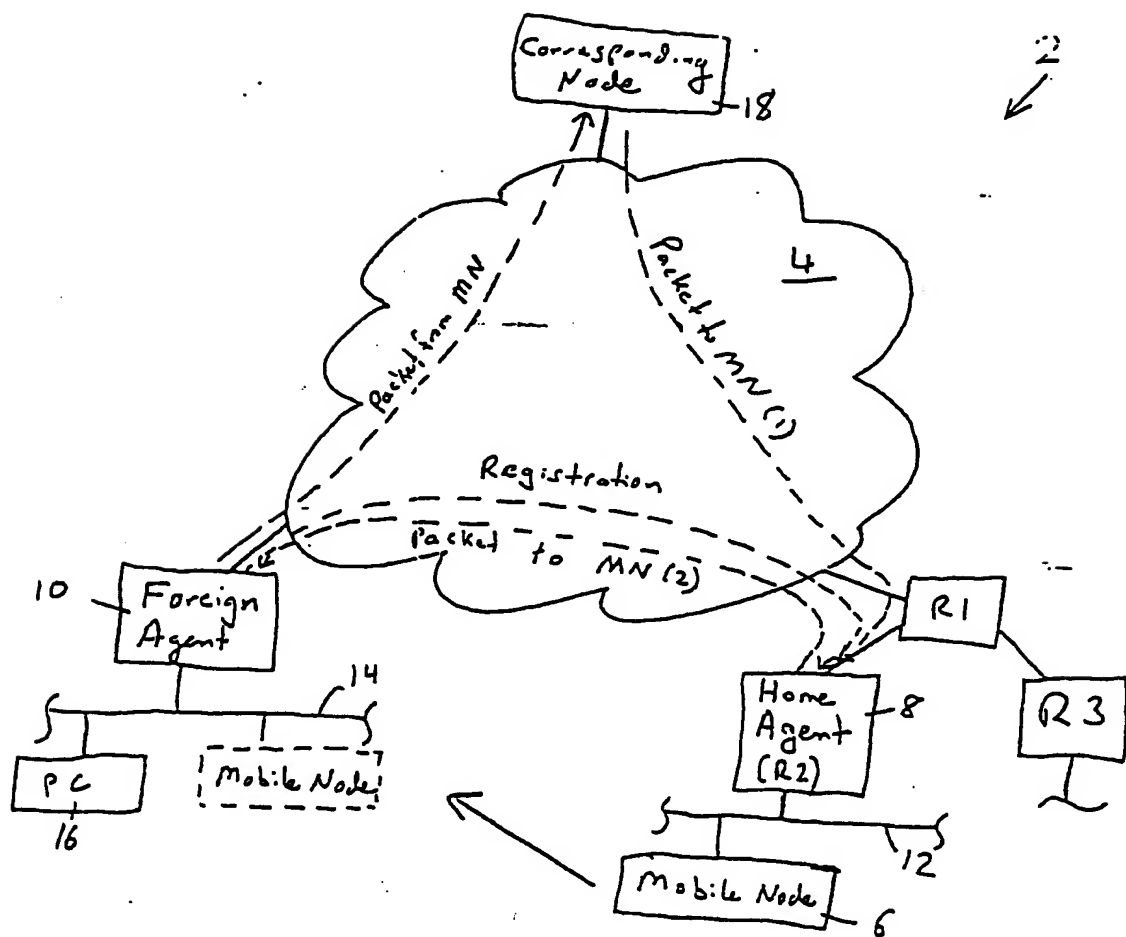 Corresponding
Node
18
2
4
Packet from MN
Packet to MN (1)
Registration
Packet to MN (2)
10
Foreign
Agent
R1
14
Home
Agent
(R2)
8
R3
PC
Mobile Node
16
12
Mobile Node
6